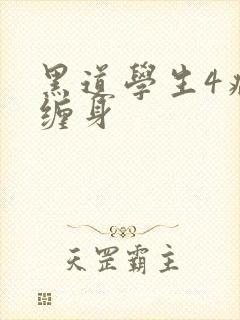 黑道學生4
缠身
天罡霸主